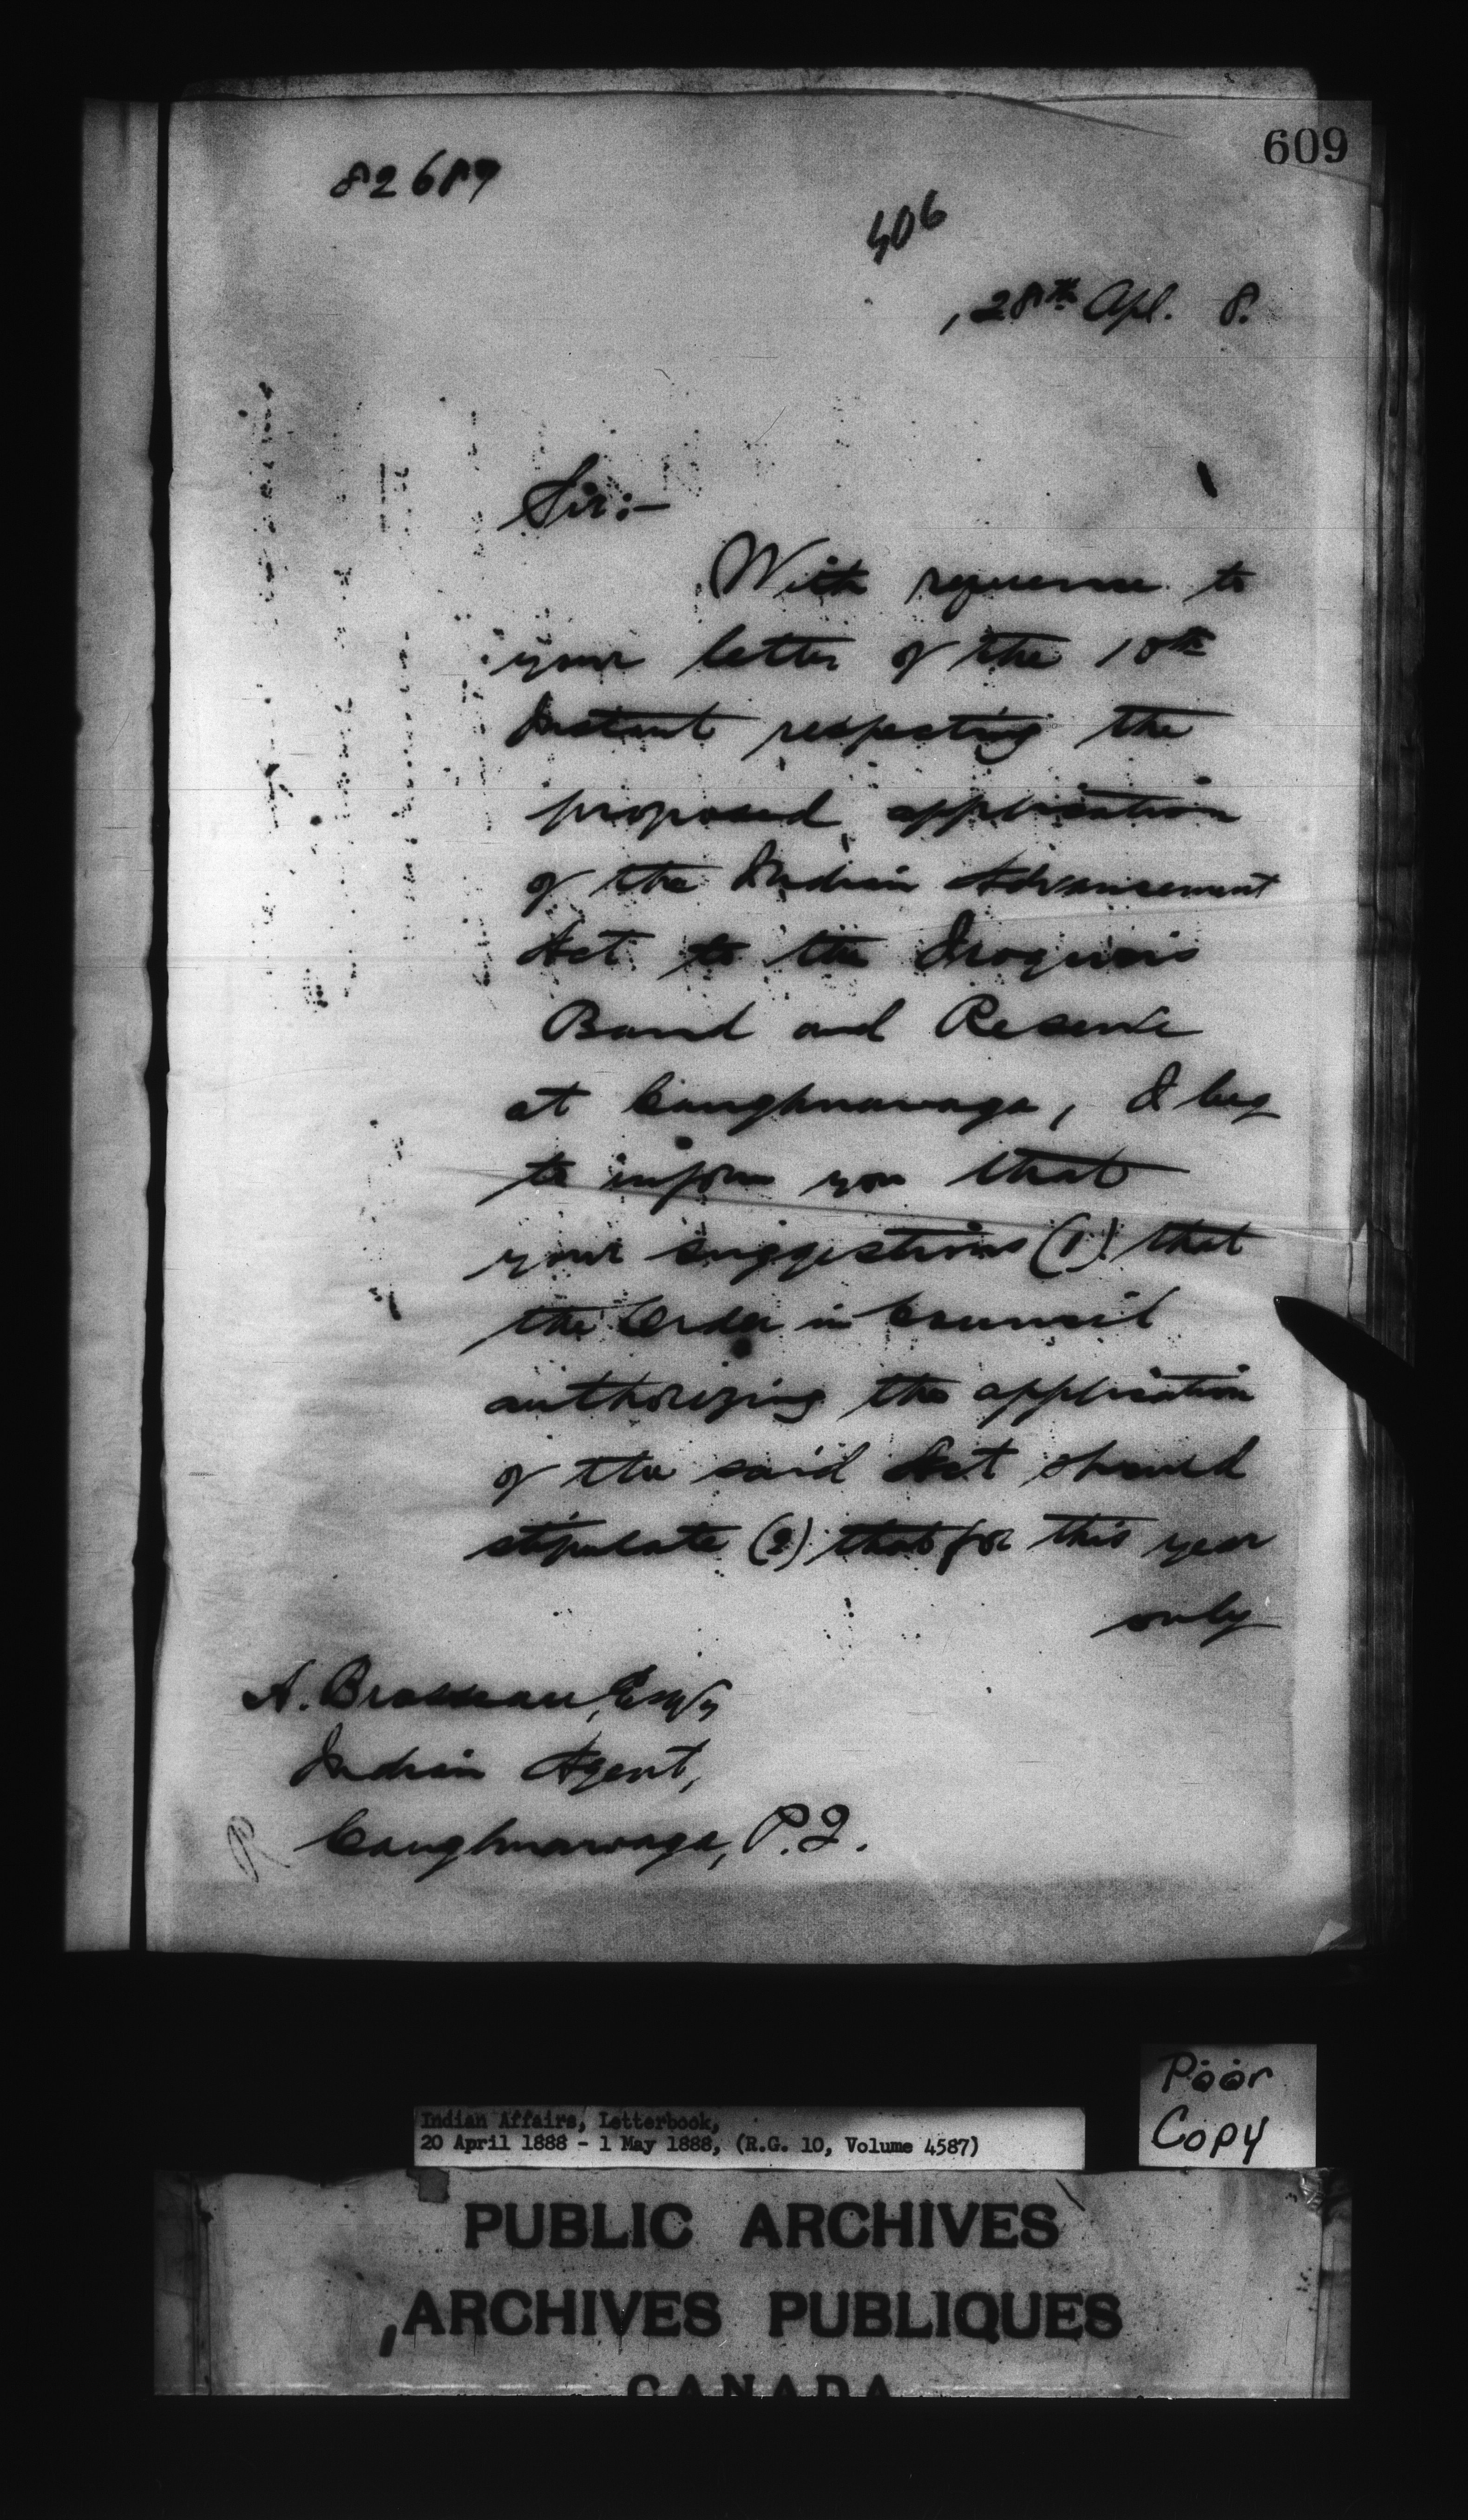 609
82689
406
, 28th Apl. 8.
Sir:-
With reference to
your letter of the 18th
Instant respecting the
proposed application
of the Indian Advancement
Act to the Iroquois
Band and Reserve
at Caughnawaga, I beg
to inform you that
your suggestions (1) that
the Order in Council
authorizing the application
of the said Act should
stipulate (2) that for this year
only
A. Brosseau, Esq
Indian Agent,
Caughnawaga, P.Q.
R
Poor
Copy
Indian Affairs, Letterbook,
20 April 1888 - 1 May 1888, (R.G. 10, Volume 4587)
PUBLIC ARCHIVES
ARCHIVES PUBLIQUES
CANADA